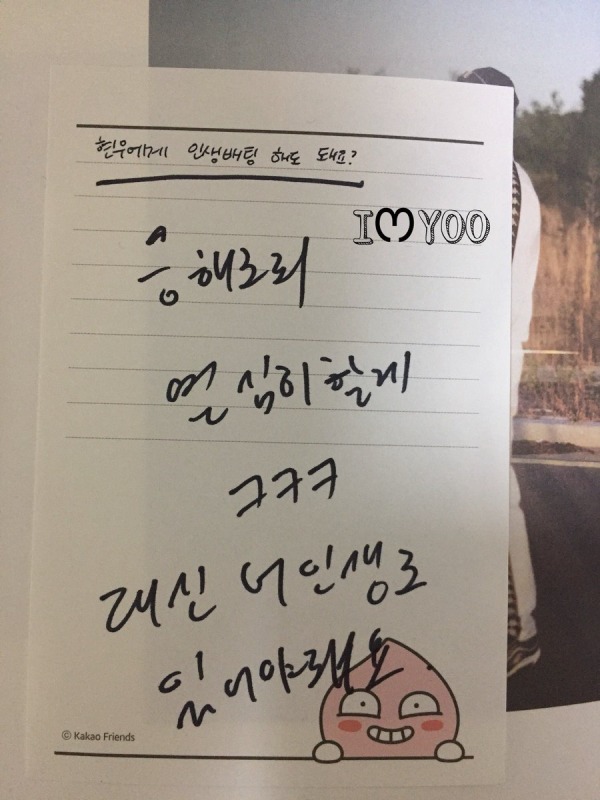 현우에게 인생배팅 해도 돼요?
I ღ YOO
응 해도되
열심히할게
ㅋㅋㅋ
대신 너 인생도
있어야돼요
© Kakao Friends